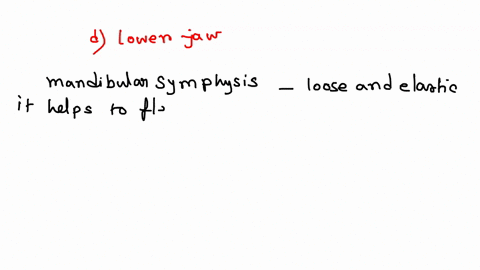 d) lower jaw
mandibular symphysis - loose and elastic
it helps to fl